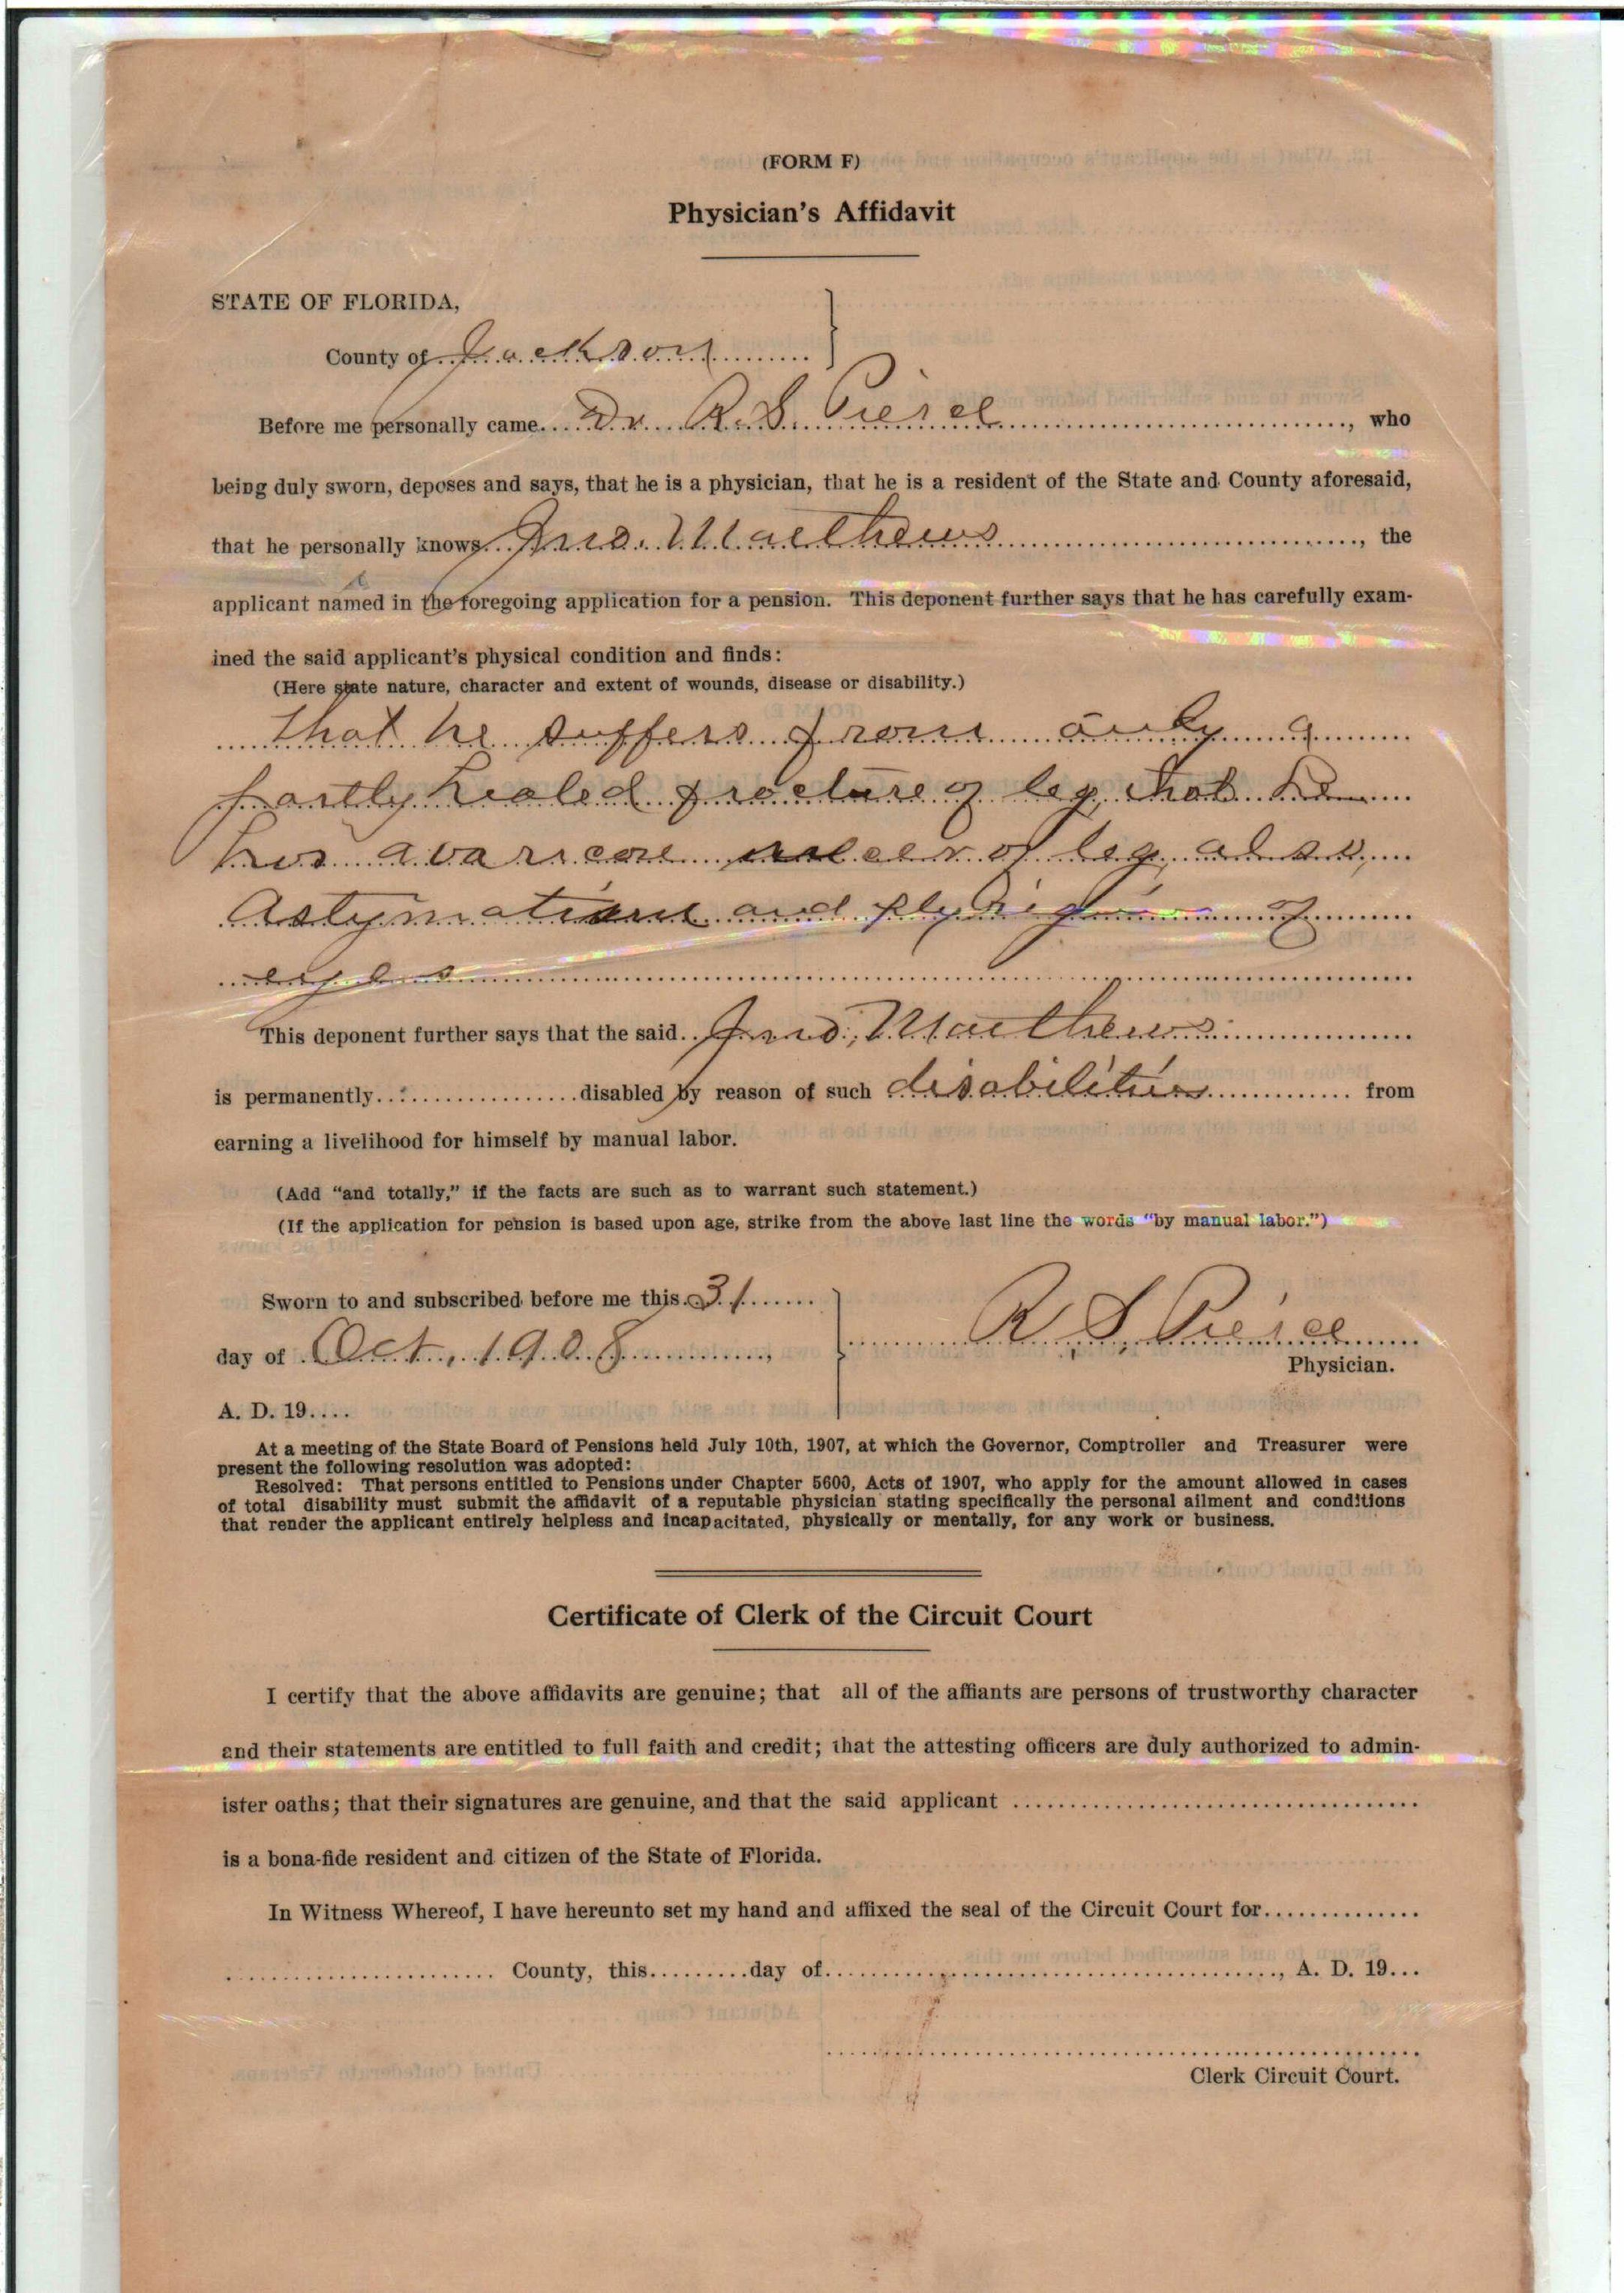 (FORM F)
Physician's Affidavit
STATE OF FLORIDA,
County of Jackson
Before me personally came Dr R. S. Pierce, who
being duly sworn, deposes and says, that he is a physician, that he is a resident of the State and County aforesaid,
that he personally knows Jno. Matthews, the
applicant named in the foregoing application for a pension. This deponent further says that he has carefully exam-
ined the said applicant's physical condition and finds:
(Here state nature, character and extent of wounds, disease or disability.)
that he suffers from only a
partly healed fracture of leg, that he
has a varicose ulcer of leg, also,
Astymatism and of
eyes
This deponent further says that the said Jno. Matthews
is permanently................disabled by reason of such disabilities from
earning a livelihood for himself by manual labor.
(Add "and totally," if the facts are such as to warrant such statement.)
(If the application for pension is based upon age, strike from the above last line the words "by manual labor.")
Sworn to and subscribed before me this 31
day of Oct, 1908,
R. S. Pierce
Physician.
A. D. 19....
At a meeting of the State Board of Pensions held July 10th, 1907, at which the Governor, Comptroller and Treasurer were
present the following resolution was adopted:
Resolved: That persons entitled to Pensions under Chapter 5600, Acts of 1907, who apply for the amount allowed in cases
of total disability must submit the affidavit of a reputable physician stating specifically the personal ailment and conditions
that render the applicant entirely helpless and incapacitated, physically or mentally, for any work or business.
Certificate of Clerk of the Circuit Court
I certify that the above affidavits are genuine; that all of the affiants are persons of trustworthy character
and their statements are entitled to full faith and credit; that the attesting officers are duly authorized to admin-
ister oaths; that their signatures are genuine, and that the said applicant ....................................
is a bona-fide resident and citizen of the State of Florida.
In Witness Whereof, I have hereunto set my hand and affixed the seal of the Circuit Court for..............
........................ County, this.........day of........................................, A. D. 19...
Clerk Circuit Court.